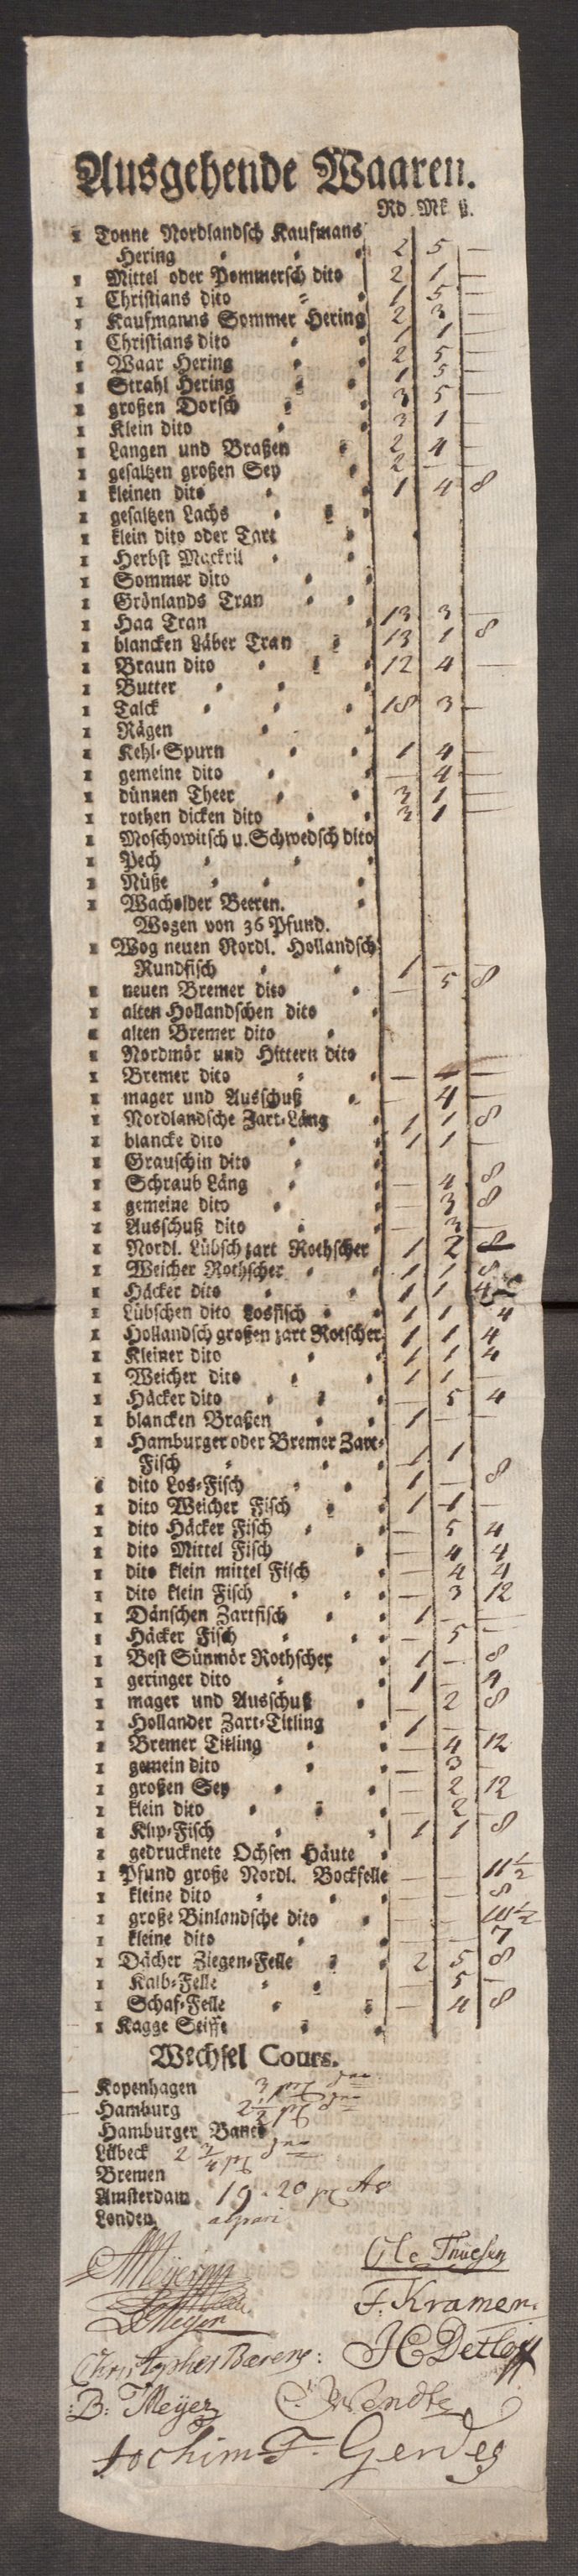 Ausgehende Waaren.
Rd. Mk ß.
1 Tonne Nordlandsch Kaufmans
Hering 2 5 —
1 Mittel oder Pommersch dito 2 1 —
1 Christians dito 1 5 —
1 Kaufmanns Sommer Hering 2 3 —
1 Christians dito 1 1 —
1 Waar Hering 2 5 —
1 Strahl Hering 1 5 —
1 großen Dorsch 3 5 —
1 Klein dito 3 1 —
1 Langen und Braßen 2 4 —
1 gesaltzen großen Sey 2 — —
1 kleinen dito 1 4 8
1 gesaltzen Lachs
1 klein dito oder Tart
1 Herbst Mackril
1 Sommer dito
1 Grönlands Tran
1 Haa Tran 13 3 —
1 blancken Läber Tran 13 1 8
1 Braun dito 12 4 —
1 Butter
1 Talck 18 3 —
1 Rägen
1 Kehl-Spurn 1 4 —
1 gemeine dito — 4 —
1 dünnen Theer 3 1 —
1 rothen dicken dito 3 1 —
1 Moschowitsch u. Schwedsch dito
1 Pech
1 Nüße
1 Wacholder Beeren.
Wogen von 36 Pfund.
1 Wog neuen Nordl. Hollandsch
Rundfisch 1 — —
1 neuen Bremer dito — 5 8
1 alten Hollandschen dito
1 alten Bremer dito
1 Nordmör und Hittern dito
1 Bremer dito — — —
1 mager und Ausschuß — 4 —
1 Nordlandsche Zart-Läng 1 1 8
1 blancke dito 1 1 —
1 Grauschin dito
1 Schraub Läng — 4 8
1 gemeine dito — 3 8
1 Ausschuß dito — 3 —
1 Nordl. Lübsch zart Rothscher 1 2
1 Weicher Rothscher 1 1 8
1 Häcker dito 1 1
1 Lübschen dito Losfisch 1 1 4
1 Hollandsch großen zart Rotscher 1 1 4
1 Kleiner dito 1 1 4
1 Weicher dito 1 1 —
1 Häcker dito — 5 4
1 blancken Braßen 1 — —
1 Hamburger oder Bremer Zart-
Fisch 1 1
1 dito Los-Fisch 1 — 8
1 dito Weicher Fisch 1 1 —
1 dito Häcker Fisch — 5 4
1 dito Mittel Fisch — 4 4
1 dito klein mittel Fisch — 4 4
1 dito klein Fisch — 3 12
1 Dänschen Zartfisch 1 — —
1 Häcker Fisch — 5 —
1 Best Sünmör Rothscher 1 — 8
1 geringer dito 1 — 4
1 mager und Ausschuß — 2 8
1 Hollander Zart-Titling 1 —
1 Bremer Titling — 4 12
1 gemein dito — 3 —
1 großen Sey — 2 12
1 klein dito — 2 —
1 Klip-Fisch 1 1 8
1 gedrucknete Ochsen Häute
1 Pfund große Nordl. Bockfelle — — 11½
1 kleine dito — — 8
1 große Binlandsche dito — — 10½
1 kleine dito — — 7
1 Dächer Ziegen-Felle 2 5 8
1 Kalb-Felle — 5 —
1 Schaf-Felle — 4 8
1 Kagge Seiffe
Wechsel Cours.
Kopenhagen 3
Hamburg 2½
Hamburger Banco
Lübeck 2 ¾
Bremen
Amsterdam 19 . 20
London alpari
Ole Thuesen
DMeyer F. Kramer.
Christopher Berens: JC Detloff
B: Meyer Wendte
Jochim F. Gerdes